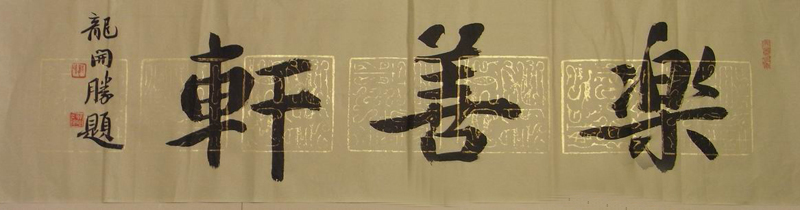 楽善軒
龍開勝題